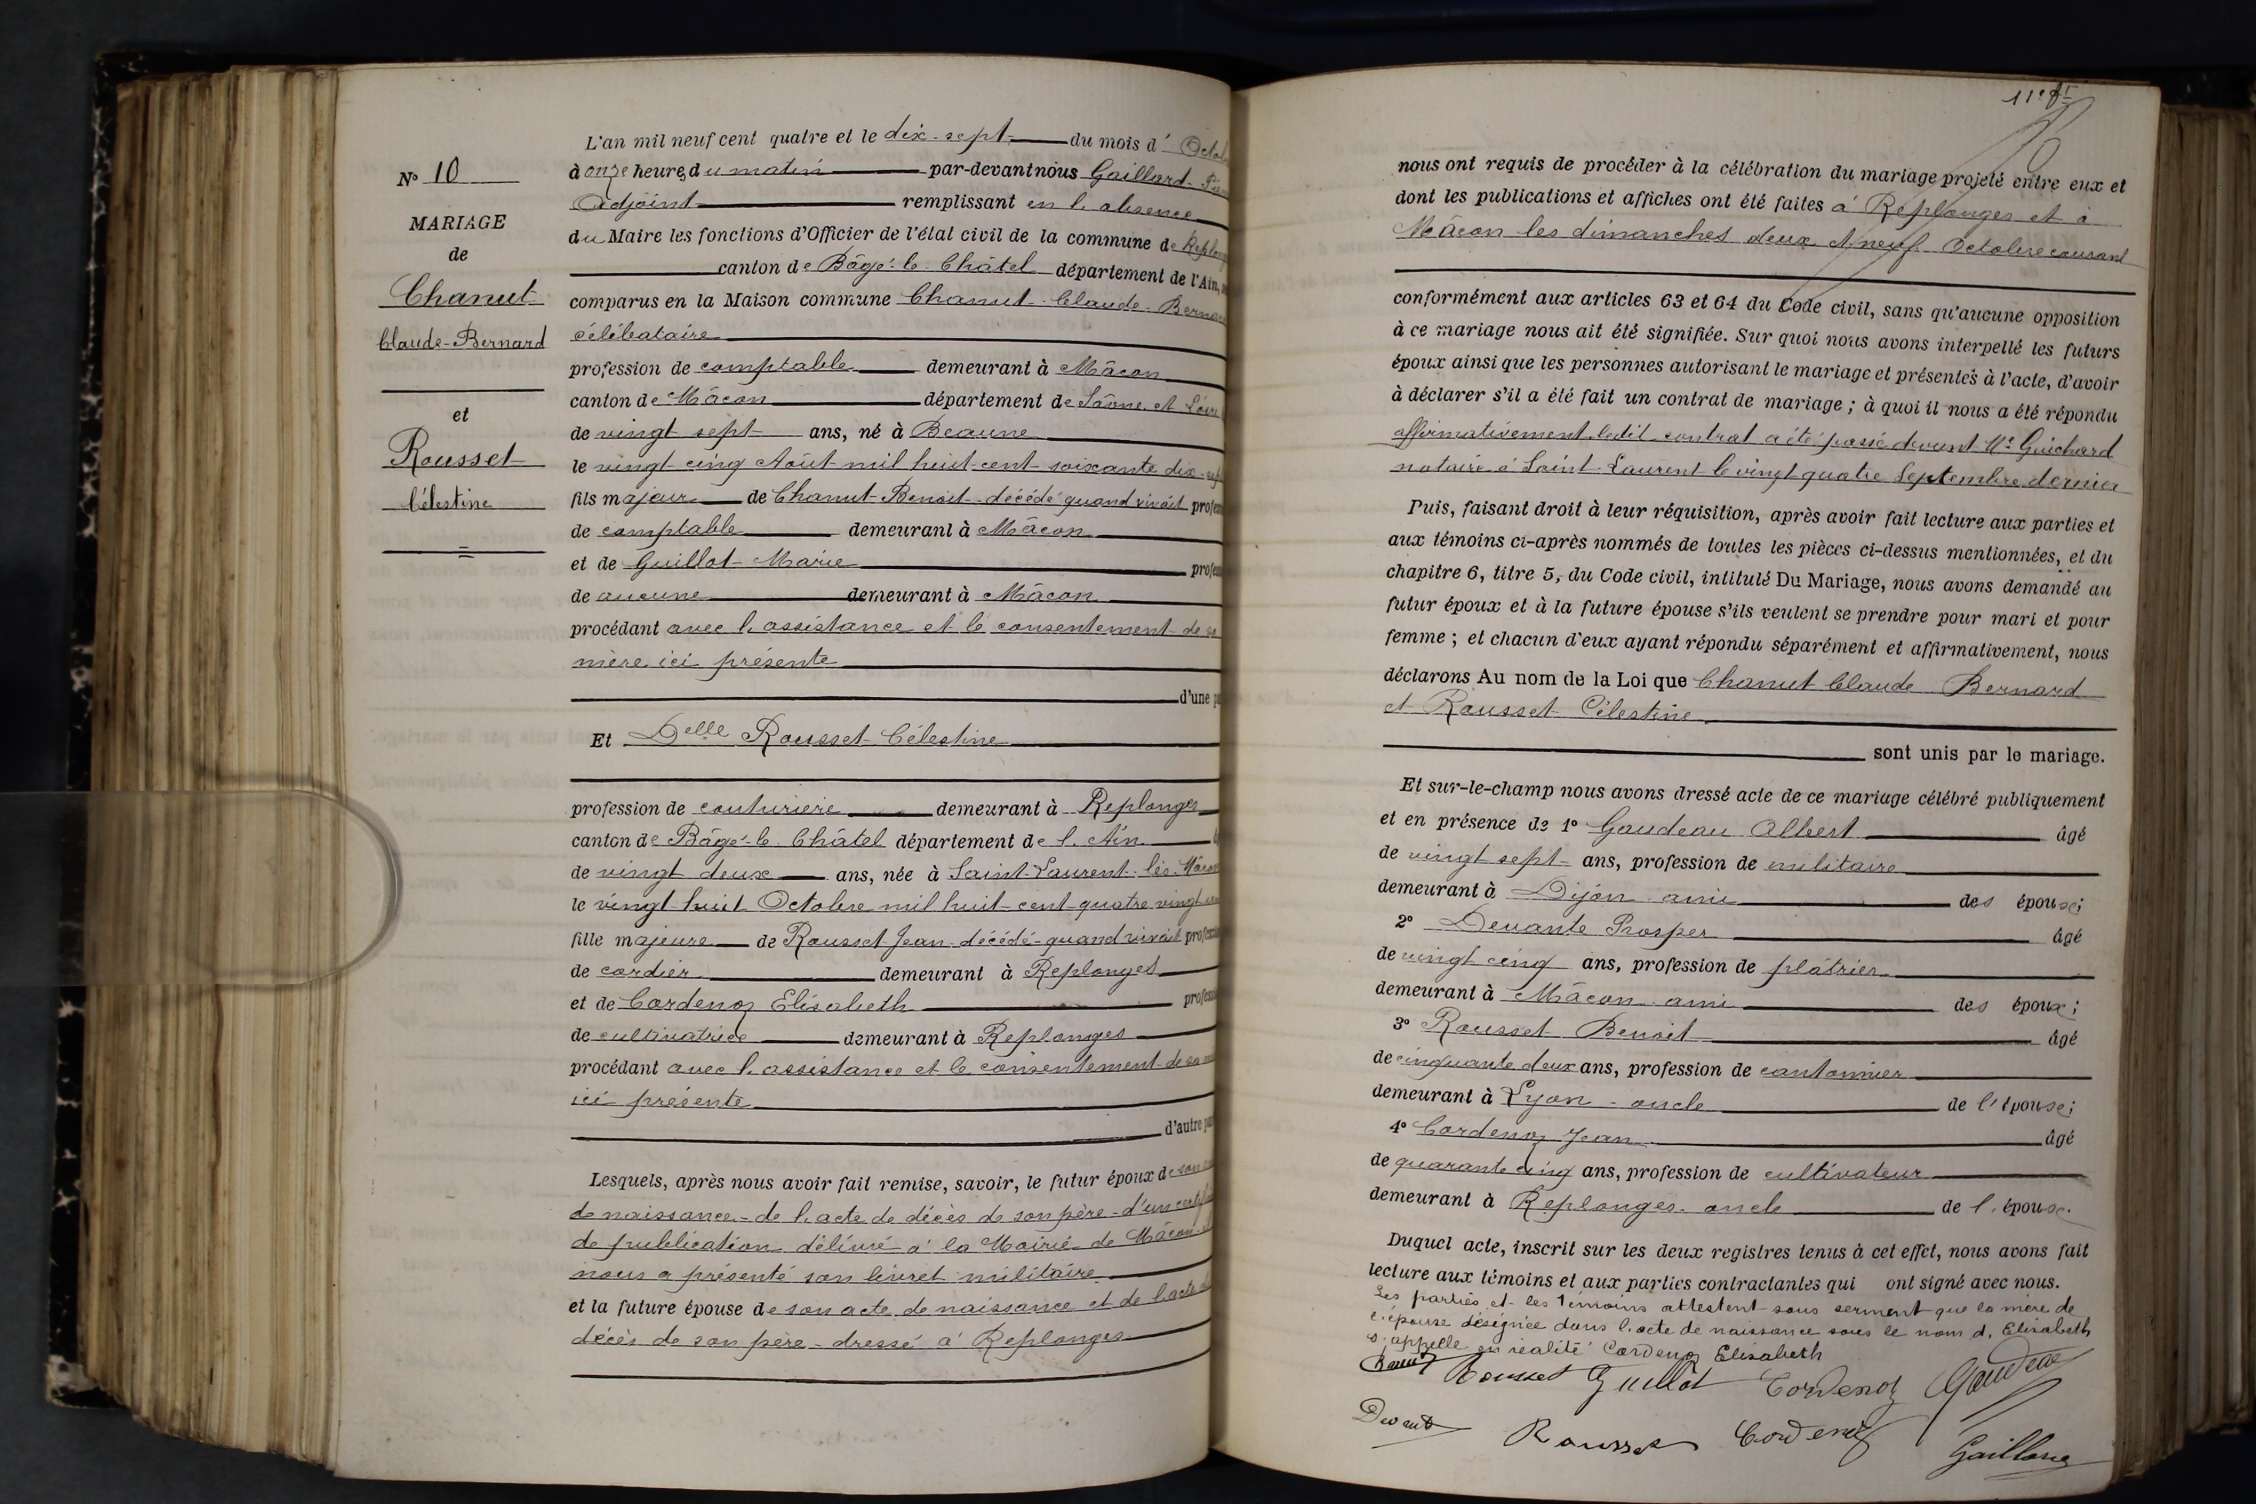 N° 10
MARIAGE
de
Chanut
Claude-Bernard
et
Rousset
Célestine
L'an mil neuf cent quatre et le dix-sept du mois d'Octob
à onze heures du matin par-devant nous Gaillard
Adjoint remplissant en l'absence
du Maire les fonctions d'Officier de l'état civil de la commune de Replong
canton de Bâgé-le-Châtel département de l'Ain,
comparus en la Maison commune Chanut Claude-Bernar
célibataire
profession de comptable demeurant à Mâcon
canton de Mâcon département de Saône et Loire
de vingt sept ans, né à Beaune
le vingt cinq Août mil huit cent soixante dix-sep
fils majeur de Chanut Benoit décédé quand vivait profes
de comptable demeurant à Mâcon
et de Guillot Marie profes
de aucune demeurant à Mâcon
procédant avec l'assistance et le consentement de sa
mère ici présente
d'une pa
Et Delle Rousset Célestine
profession de couturière demeurant à Replonges
canton de Bâgé-le-Châtel département de l'Ain
de vingt deux ans, née à Saint-Laurent-lès-Mâcon
le vingt huit Octobre mil huit cent quatre vingt
fille majeure de Rousset Jean décédé quand vivait profess
de cordier demeurant à Replonges
et de Cordenoz Elisabeth profess
de cultivatrice demeurant à Replonges
procédant avec l'assistance et le consentement de sa
ici présente
d'autre pa
Lesquels, après nous avoir fait remise, savoir, le futur époux de son
de naissance - de l'acte de décès de son père - d'un certif
de publication délivré à la Mairie de Mâcon
nous a présenté son livret militaire
et la future épouse de son acte de naissance et de l'acte
décès de son père - dressé à Replonges
nous ont requis de procéder à la célébration du mariage projeté entre eux et
dont les publications et affiches ont été faites à Replonges et à
Mâcon les dimanches deux et neuf Octobre courant
conformément aux articles 63 et 64 du Code civil, sans qu'aucune opposition
à ce mariage nous ait été signifiée. Sur quoi nous avons interpellé les futurs
époux ainsi que les personnes autorisant le mariage et présentes à l'acte, d'avoir
à déclarer s'il a été fait un contrat de mariage ; à quoi il nous a été répondu
affirmativement, ledit contrat a été passé devant Me Guichard
notaire à Saint-Laurent le vingt quatre Septembre dernier
Puis, faisant droit à leur réquisition, après avoir fait lecture aux parties et
aux témoins ci-après nommés de toutes les pièces ci-dessus mentionnées, et du
chapitre 6, titre 5, du Code civil, intitulé Du Mariage, nous avons demandé au
futur époux et à la future épouse s'ils veulent se prendre pour mari et pour
femme ; et chacun d'eux ayant répondu séparément et affirmativement, nous
déclarons Au nom de la Loi que Chanut Claude Bernard
et Rousset Célestine
sont unis par le mariage.
Et sur-le-champ nous avons dressé acte de ce mariage célébré publiquement
et en présence de 1° Gaudeau Albert âgé
de vingt sept ans, profession de militaire
demeurant à Dijon ami des époux;
2° Devante Prosper âgé
de vingt cinq ans, profession de plâtrier
demeurant à Mâcon ami des époux;
3° Rousset Benoit âgé
de cinquante deux ans, profession de cantonnier
demeurant à Lyon - oncle de l'épouse;
4° Cordenoz Jean âgé
de quarante cinq ans, profession de cultivateur
demeurant à Replonges - oncle de l'épouse.
Duquel acte, inscrit sur les deux registres tenus à cet effet, nous avons fait
lecture aux témoins et aux parties contractantes qui ont signé avec nous.
Les parties et les témoins attestent sous serment que la mère de
l'épouse désignée dans l'acte de naissance sous le nom d'Elisabeth
s'appelle en réalité Cordenoz Elisabeth
Rousset Guillot Cordenoz Gaudeau
Rousset Cordenoz Gaillard